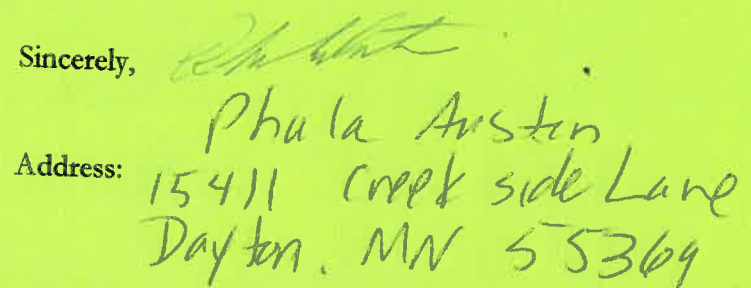 Sincerely,
Phula Austin
Address: 15411 Creek side Lane
Dayton, MN 55369